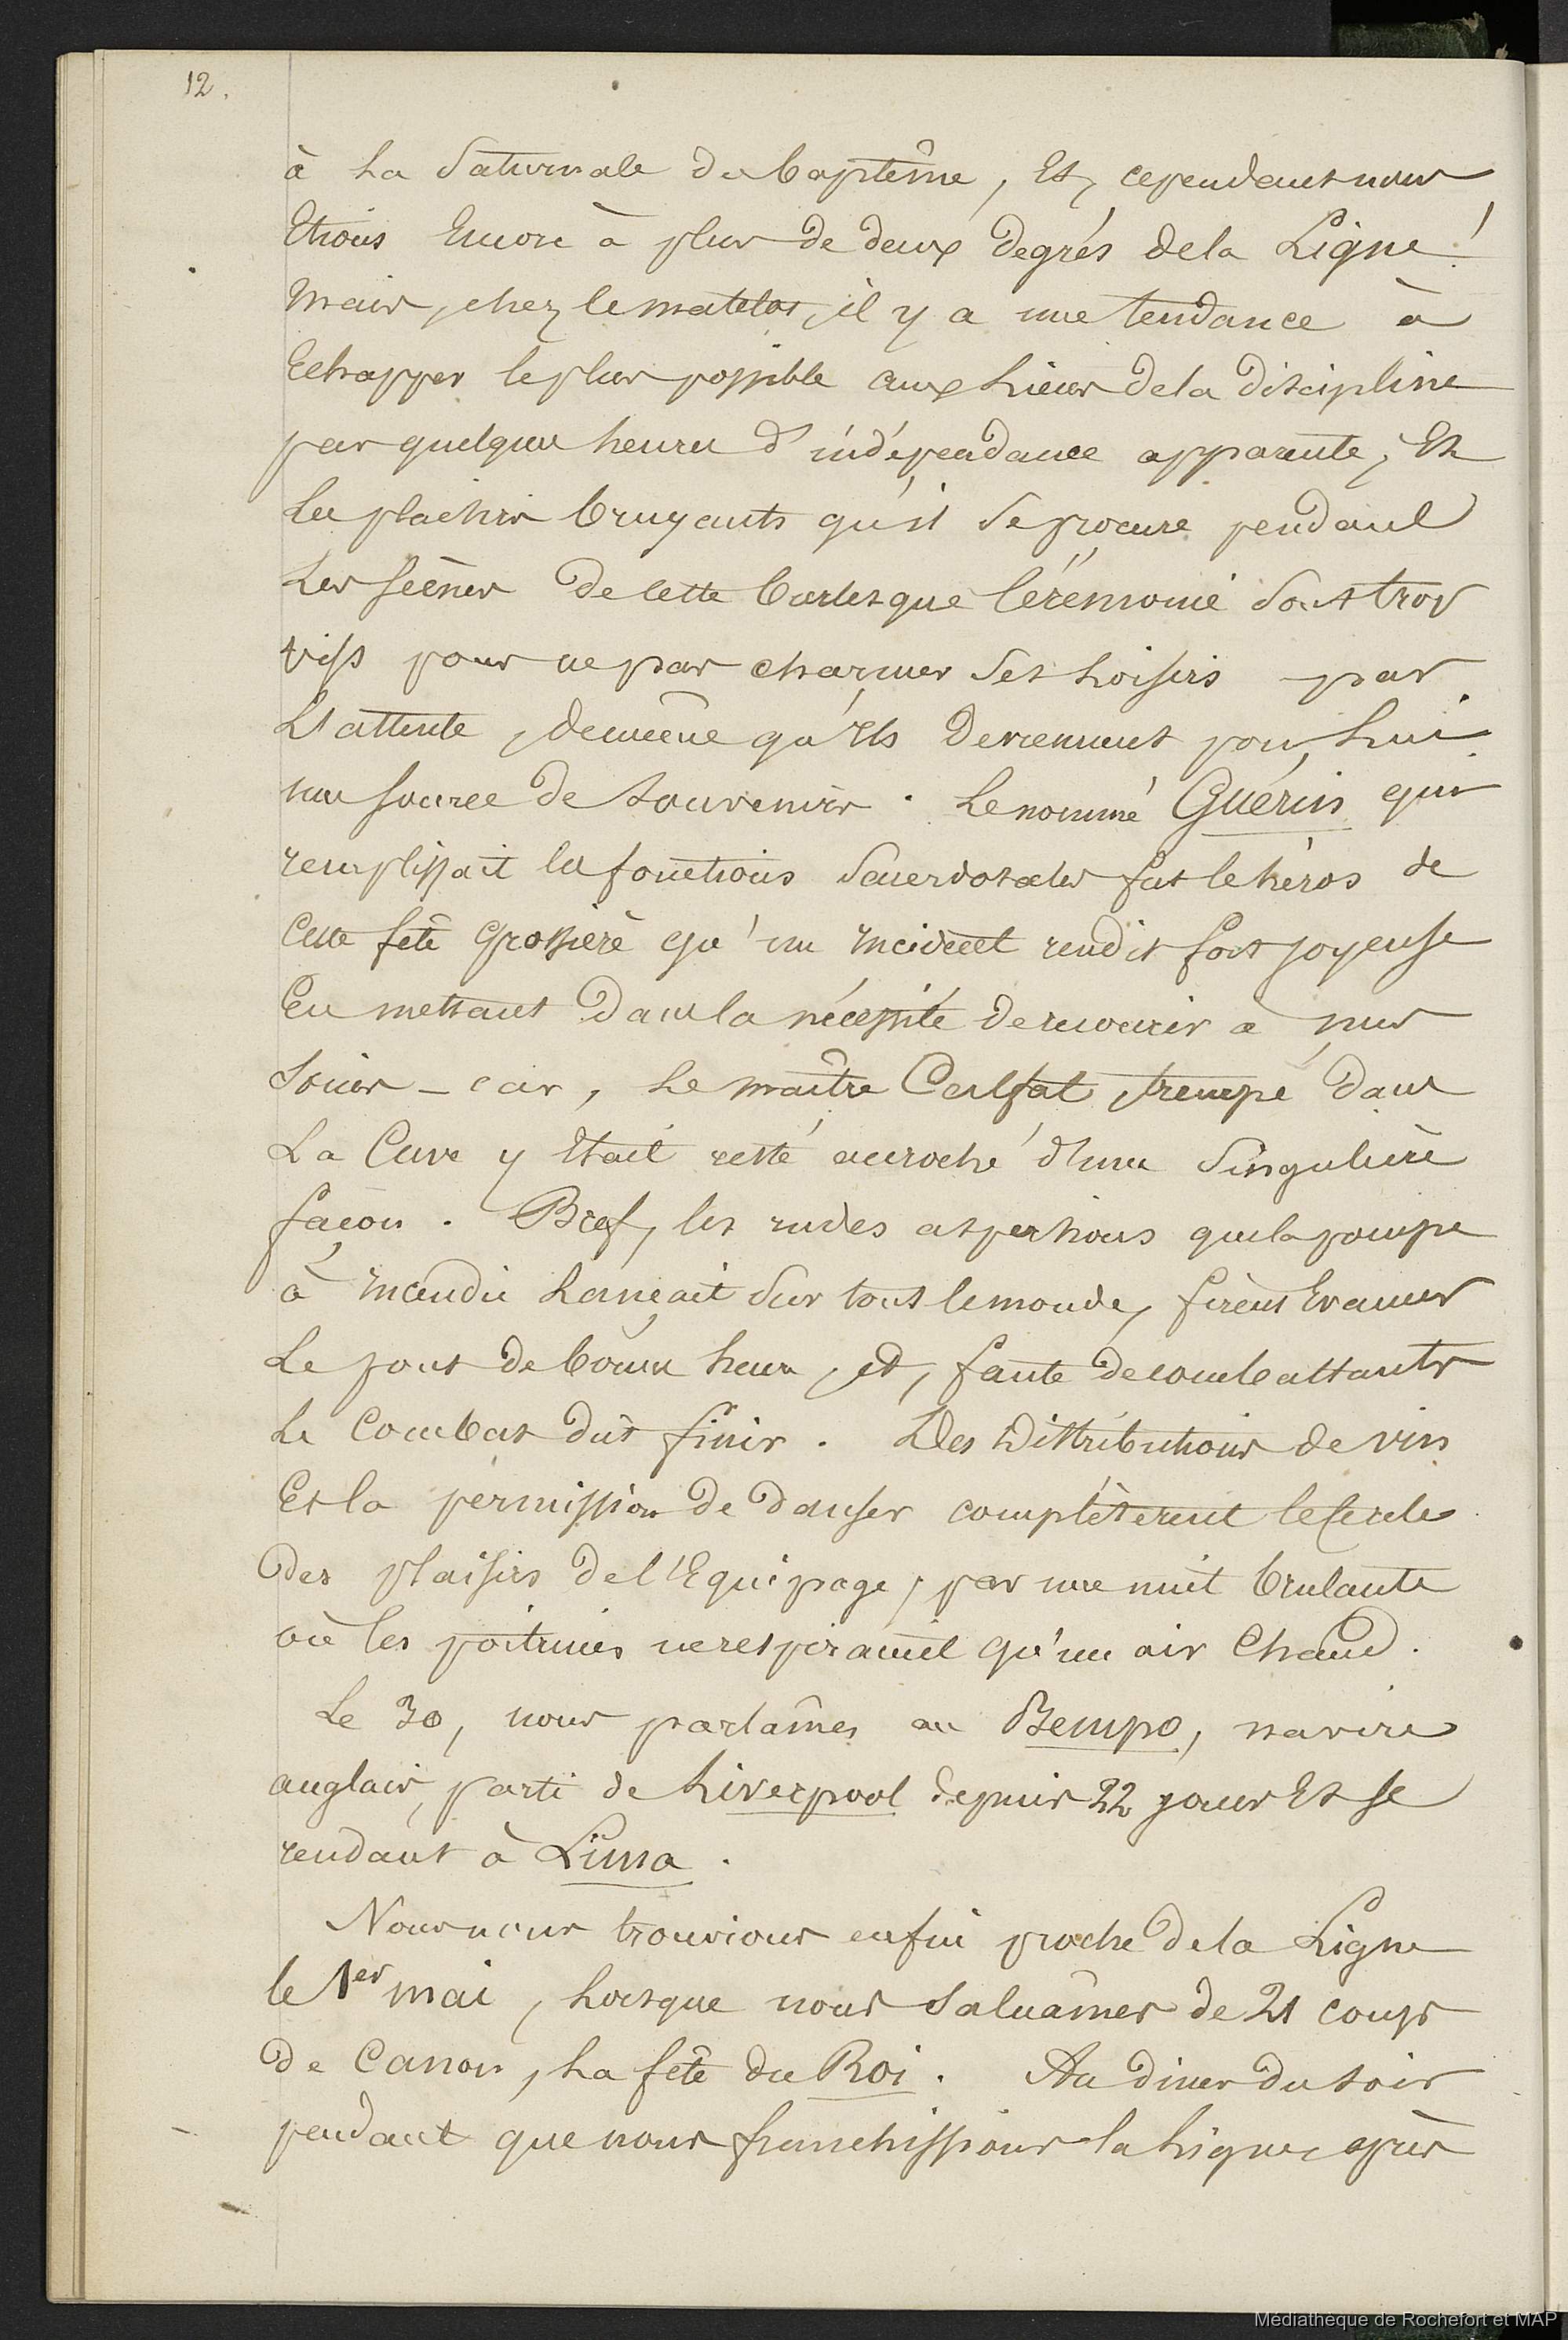 12.
à la Saturnale du baptême, Et, cependant nous
Etions Encore à plus de deux degrés de la Ligne !
Mais, chez le matelot, il y a une tendance à
Echapper le plus possible aux liens de la discipline
par quelques heures d'indépendance apparente, Et
les plaisirs bruyants qu'il se procure pendant
les scènes de cette burlesque Cérémonie sont trop
vifs pour ne pas charmer ses loisirs par
l'attente, de même qu'ils deviennent pour lui
une source de souvenirs. Le nommé Guérin qui
remplissait les fonctions sacerdotales fut le héros de
cette fête grossière qu'un incident rendit fort joyeuse
En mettant dans la nécessité de recourir à mes
soins - car, le maître Calfat, trempé dans
La Cuve y Etait resté accroché d'une singulière
façon. Bref, les rudes aspersions que la pompe
à incendie lançait sur tout le monde, firent Evacuer
le pont de bonne heure, et, faute de combattants
le Combat dût finir. Des distributions de vin
Et la permission de danser complétèrent le Cercle
des plaisirs de l'Equipage, par une nuit brulante
où les poitrines ne respiraient qu'un air chaud.
Le 30, nous parlâmes au Bempo, navire
anglais, parti de Liverpool depuis 22 jours Et se
rendant à Lima.
Nous nous trouvions enfin proche de la Ligne
le 1er mai, lorsque nous saluâmes de 21 coups
de Canon, la fête du Roi. Au diner du soir
pendant que nous franchissions la ligne, après
Médiathèque de Rochefort et MAP